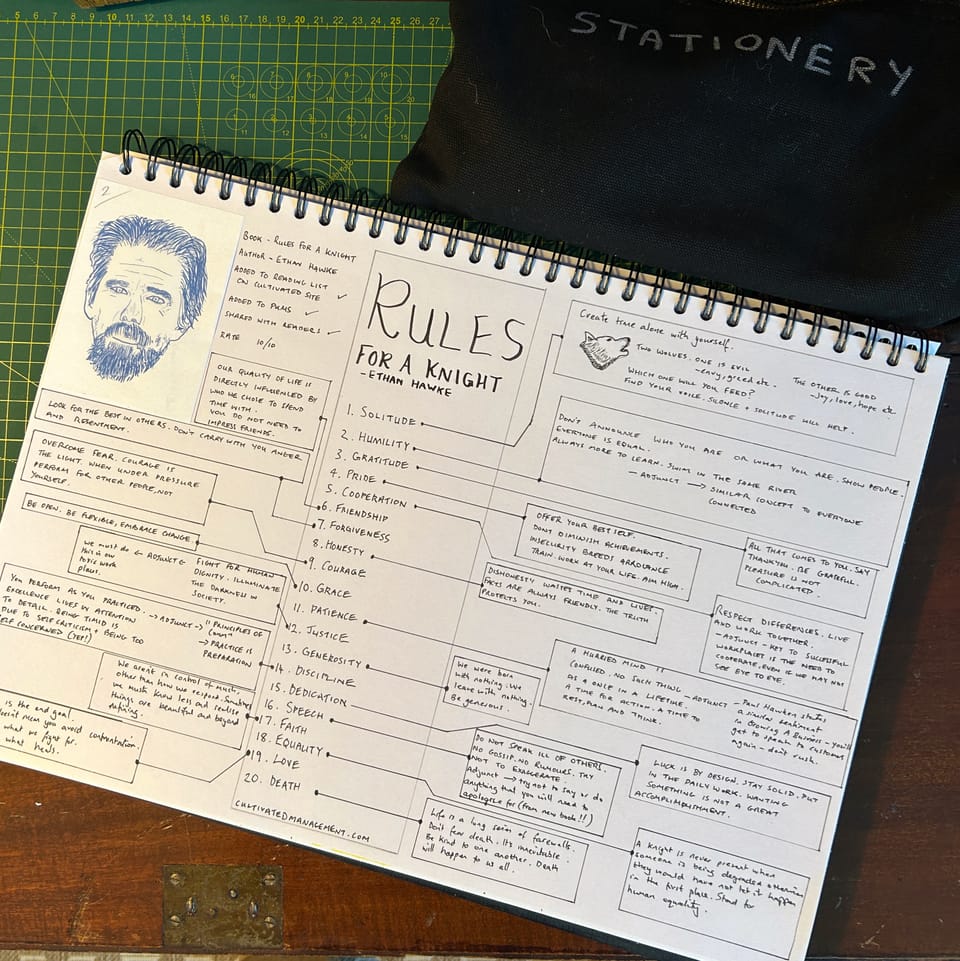 STATIONERY
5 6 7 8 9 10 11 12 13 14 15 16 17 18 19 20 21 22 23 24 25 26 27
2
BOOK - RULES FOR A KNIGHT
AUTHOR - ETHAN HAWKE
ADDED TO READING LIST
ON CULTIVATED SITE ✓
ADDED TO PKMS ✓
SHARED WITH READERS ✓
RATE 10/10
OUR QUALITY OF LIFE IS
DIRECTLY INFLUENCED BY
WHO WE CHOSE TO SPEND
TIME WITH.
YOU DO NOT NEED TO
IMPRESS FRIENDS.
LOOK FOR THE BEST IN OTHERS. DON'T CARRY WITH YOU ANGER
AND RESENTMENT.
OVERCOME FEAR. COURAGE IS
THE LIGHT. WHEN UNDER PRESSURE
PERFORM FOR OTHER PEOPLE, NOT
YOURSELF.
BE OPEN. BE FLEXIBLE, EMBRACE CHANGE.
we must do ← ADJUNCT
this in our
toxic work
places.
FIGHT FOR HUMAN
DIGNITY. ILLUMINATE
THE DARKNESS IN
SOCIETY.
YOU PERFORM AS YOU PRACTICED.
EXCELLENCE LIVES IN ATTENTION
TO DETAIL. BEING TIMID IS
DUE TO SELF CRITICISM + BEING TOO
SELF CONCERNED (YEP!)
→ ADJUNCT → "PRINCIPLES OF
→ PRACTICE IS
PREPARATION
We aren't in control of much,
other than how we respond. Sometimes
we must know less and realise
things are beautiful and beyond
defining.
is the end goal.
doesn't mean you avoid confrontation.
what we fight for.
what heals.
RULES
FOR A KNIGHT
- ETHAN HAWKE
1. SOLITUDE
2. HUMILITY
3. GRATITUDE
4. PRIDE
5. COOPERATION
6. FRIENDSHIP
7. FORGIVENESS
8. HONESTY
9. COURAGE
10. GRACE
11. PATIENCE
12. JUSTICE
13. GENEROSITY
14. DISCIPLINE
15. DEDICATION
16. SPEECH
17. FAITH
18. EQUALITY
19. LOVE
20. DEATH
CULTIVATEDMANAGEMENT.COM
Create time alone with yourself.
TWO WOLVES. ONE IS EVIL
- envy, greed etc.
THE OTHER IS GOOD
- Joy, love, hope etc
WHICH ONE WILL YOU FEED?
FIND YOUR VOICE. SILENCE + SOLITUDE WILL HELP.
DON'T ANNOUNCE WHO YOU ARE OR WHAT YOU ARE. SHOW PEOPLE.
EVERYONE IS EQUAL.
ALWAYS MORE TO LEARN. SWIM IN THE SAME RIVER
- ADJUNCT → SIMILAR CONCEPT TO EVERYONE
CONNECTED
OFFER YOUR BEST SELF.
DONT DIMINISH ACHIEVEMENTS.
INSECURITY BREEDS ARROGANCE
TRAIN. WORK AT YOUR LIFE. AIM HIGH.
ALL THAT COMES TO YOU. SAY
THANKYOU. BE GRATEFUL.
PLEASURE IS NOT
COMPLICATED.
DISHONESTY WASTES TIME AND LIVES.
FACTS ARE ALWAYS FRIENDLY. THE TRUTH
PROTECTS YOU.
RESPECT DIFFERENCES. LIVE
AND WORK TOGETHER.
- ADJUNCT - KEY TO SUCCESSFUL
WORKPLACES IS THE NEED TO
COOPERATE, EVEN IF WE MAY NOT
SEE EYE TO EYE.
We were born
with nothing. We
leave with nothing.
Be generous.
A HURRIED MIND IS
CONFUSED. NO SUCH THING
AS A ONCE IN A LIFETIME.
A TIME FOR ACTION. A TIME TO
REST, PLAN AND THINK.
- ADJUNCT
- Paul Hawken states
a similar sentiment
in Growing A Business - you'll
get to speak to customers
again - don't rush.
DO NOT SPEAK ILL OF OTHERS.
NO GOSSIP. NO RUMOURS. TRY
NOT TO EXAGGERATE.
Adjunct → try not to say or do
anything that you will need to
apologise for (from new book!!)
LUCK IS BY DESIGN. STAY SOLID. PUT
IN THE DAILY WORK. WANTING
SOMETHING IS NOT A GREAT
ACCOMPLISHMENT.
Life is a long series of farewells.
Don't fear death. It's inevitable.
Be kind to one another. Death
will happen to us all.
A knight is never present when
someone is being degraded otherwise
they would have not let it happen
in the first place. Stand for
human equality.